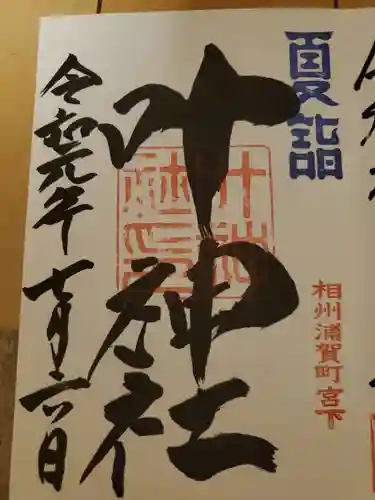 夏詣
相州浦賀町宮下
叶神社
叶神社印
令和元年七月六日